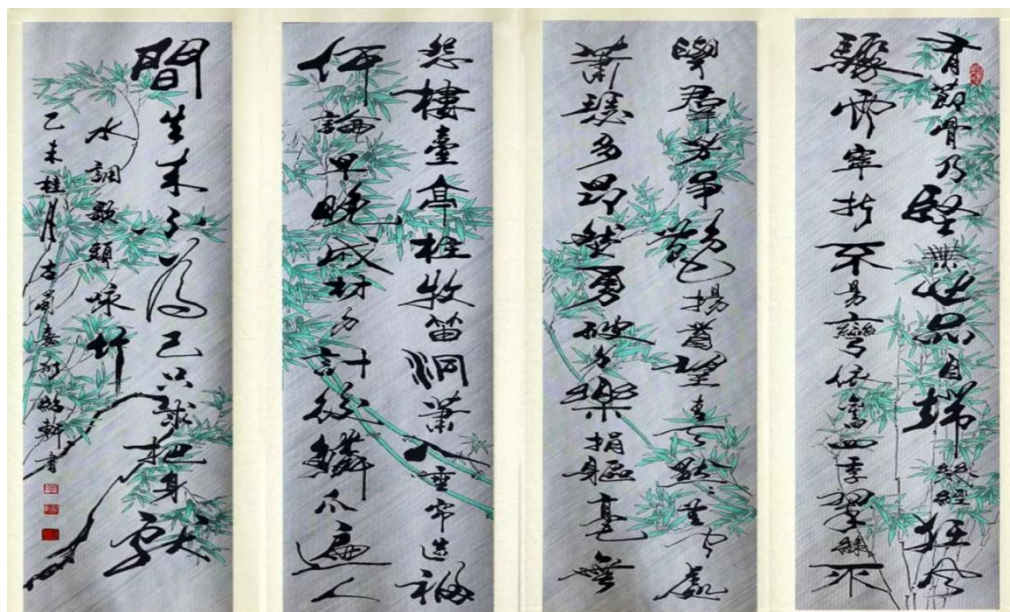 有節骨乃堅無心品自端幾經狂風
驟雨寧折不易彎依舊四季翠綠不
與羣芳爭艷揚首望青天默默無聞處
蕭瑟多昂然勇破身樂捐軀毫無
怨樓臺亭柱牧笛洞蕭入垂帘造福
何論早晚成材勿計後鱗爪遍人
間生來不為己只求把身獻
水調歌頭咏竹
乙未桂月古蜀軒書